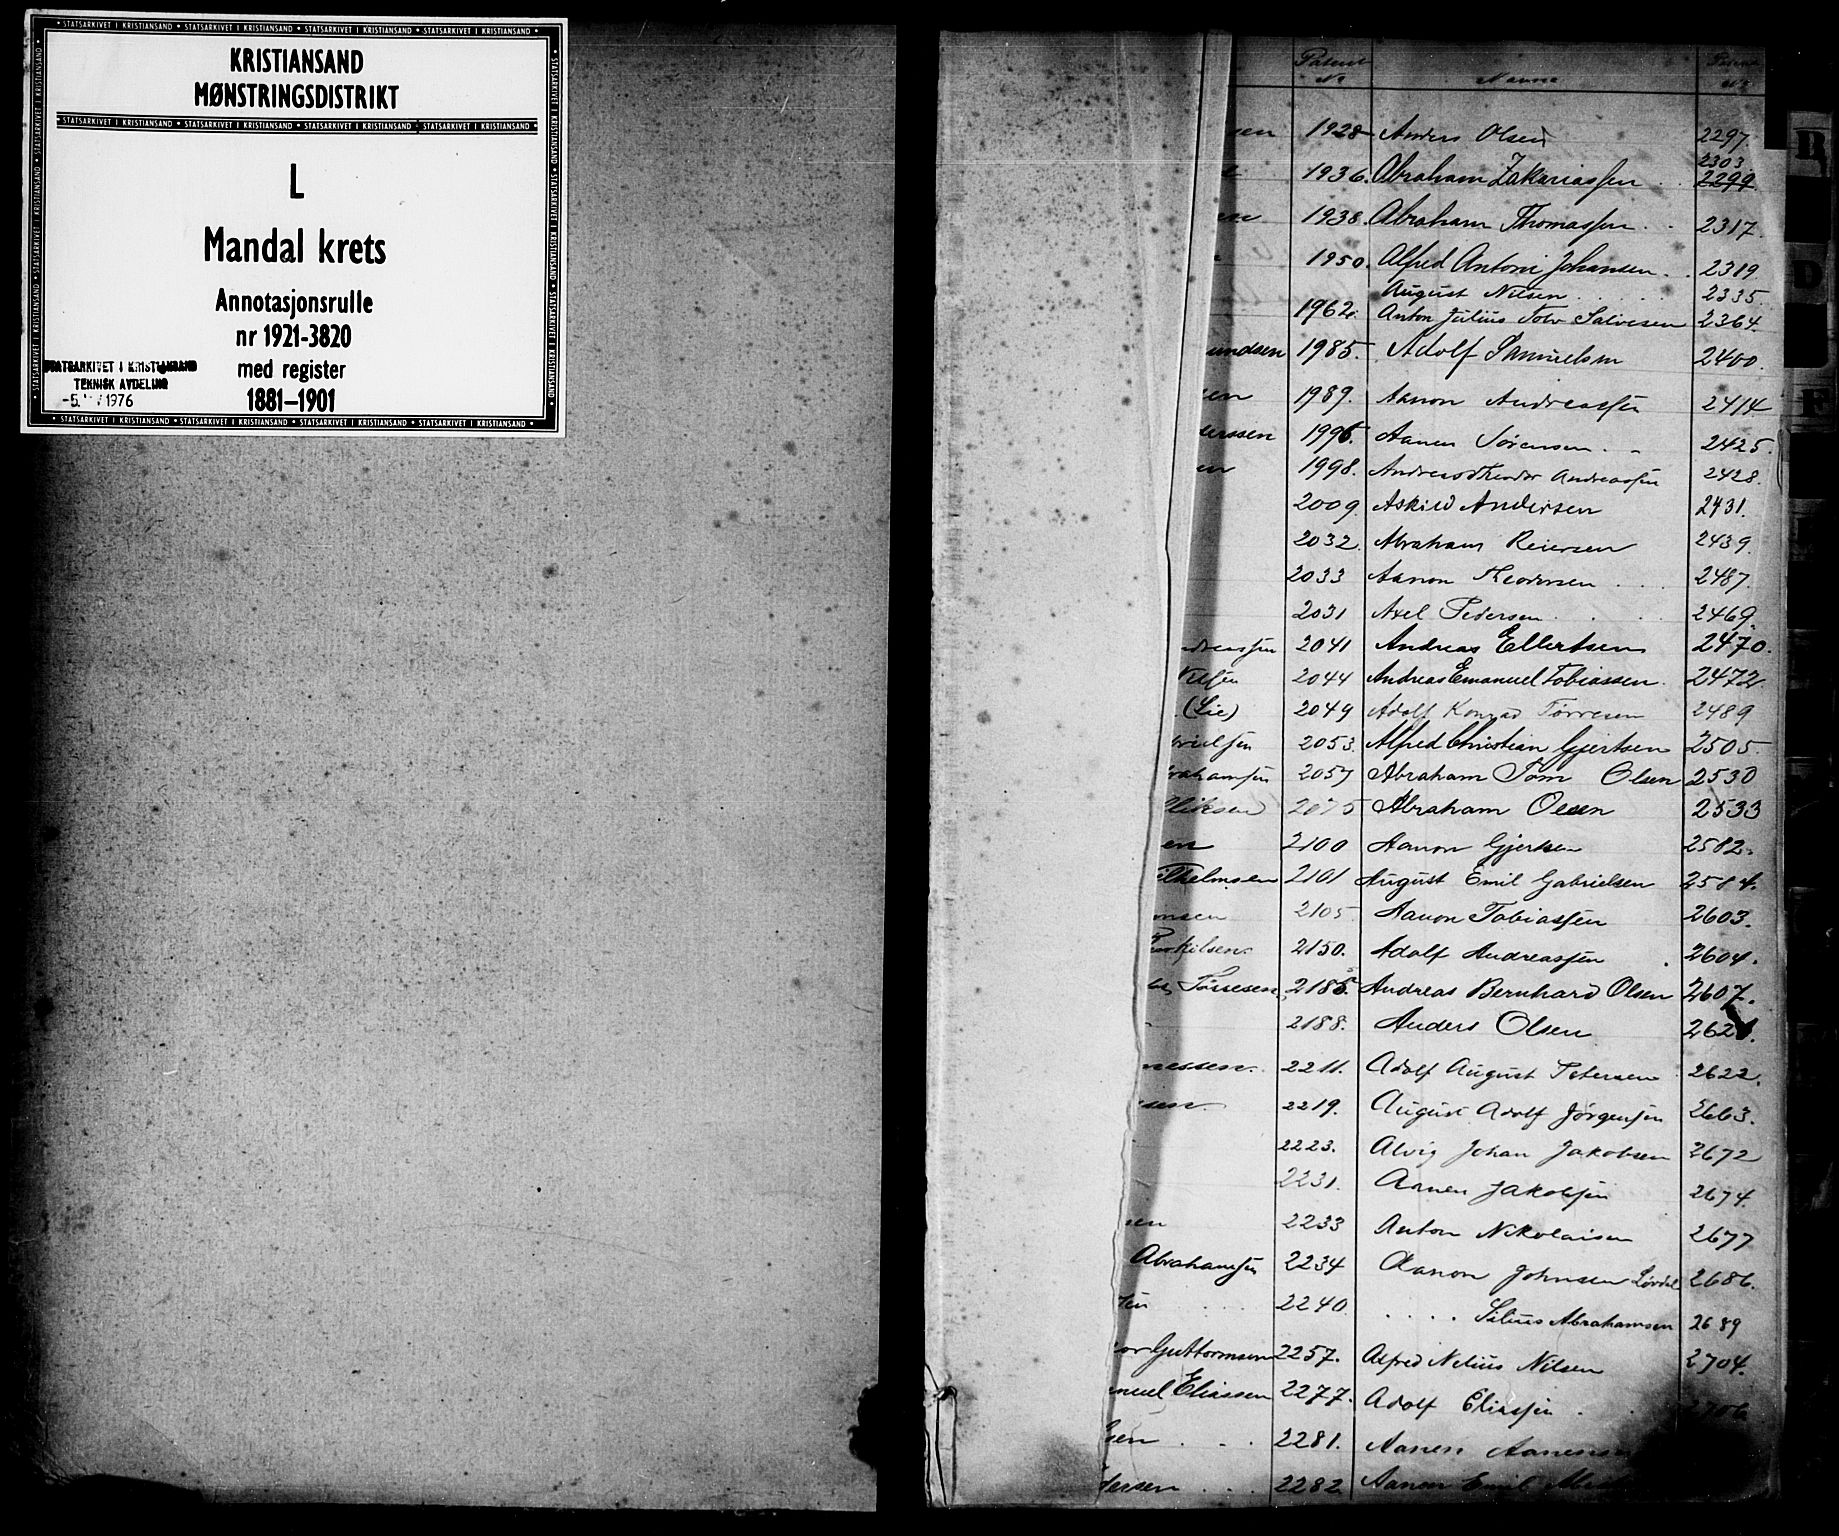 KRISTIANSAND
MØNSTRINGSDISTRIKT
L
Mandal krets
Annotasjonsrulle
nr 1921-3820
med register
1881-1901
STATSARKIVET I KRISTIANSAND
TEKNISK AVDELING
1976
Patent No Navne Patent No
1928 Anders Olsen 2297
2303
1936. Abraham Zakariassen 2299
1938. Abraham Thomassen 2317.
1950. Alfred Antoni Johansen 2319
August Nilsen 2335.
1962. Anton Julius Salvesen 2364.
undsen 1985. Adolf Samuelsen 2400.
sen 1989. Aanon Andreassen 2414
derssen 1996. Aanen Sørensen 2425.
en 1998. Andreas Theodor Andreassen 2428.
2009. Askild Andersen 2431.
2032. Abraham Reiersen 2439.
2033 Aanon Theodorsen 2487.
2031 Axel Pedersen 2469.
ndreassen 2041 Andreas Ellertsen 2470.
2044 Andreas Emanuel Tobiassen 2472.
(Lie) 2049 Adolf Konrad Tørresen 2489
brielsen 2053. Alfred Christian Gjertsen 2505.
brahamsen 2057 Abraham Tom Olsen 2530
2075 Abraham Olsen 2533
en 2100 Aanon Gjertsen 2582.
ilhelmsen 2101 August Emil Gabrielsen 2584.
onsen 2105 Aanon Tobiassen 2603.
2150. Adolf Andreassen 2604.
Tørresen 2185. Andreas Bernhard Olsen 2607.
2188. Anders Olsen 2621.
nessen. 2211. Adolf August Petersen 2622.
sen. 2219. August Adolf Jørgensen 2663.
2223. Alvig Johan Jakobsen 2672
2231. Aanen Jakobsen 2674.
sen 2233 Anton Nikolaisen 2677
Abrahamsen 2234 Aanon Johnsen Lørdal 2686.
sen 2240 . . . . Silius Abrahamsen 2689
or Guttormsen 2257. Alfred Nelius Nilsen 2704.
nuel Eliassen 2277. Adolf Eliassen 2706
sen 2281. Aanen Aanensen
dersen 2282 Aanon Emil
B
D